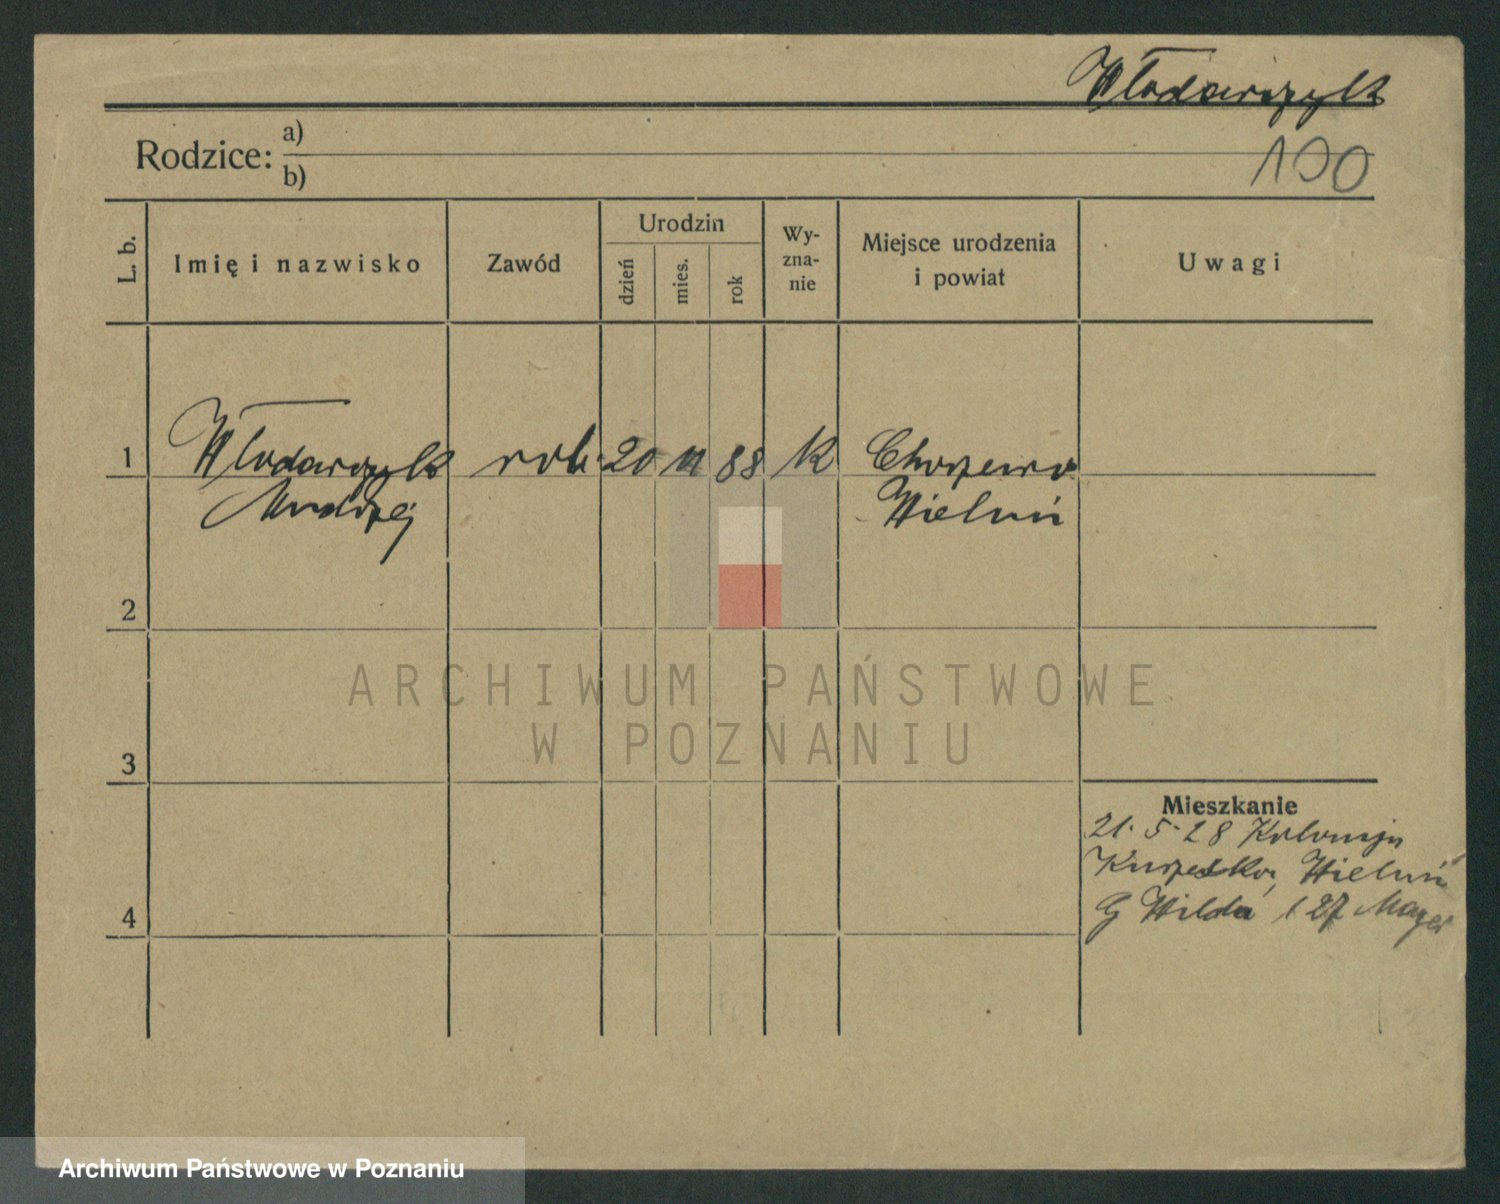 Włodarczyk
Rodzice: a)
b)
100
L. b.
Imię i nazwisko
Zawód
Urodzin
dzień
mies.
rok
Wy-
zna-
nie
Miejsce urodzenia
i powiat
Uwagi
1 Włodarczyk rob. 20 11 88 k
Andrzej Wieluń
2
ARCHIWUM PAŃSTWOWE
W POZNANIU
3
Mieszkanie
21.5.28
Wieluń
4
G Wilda 127
Archiwum Państwowe w Poznaniu